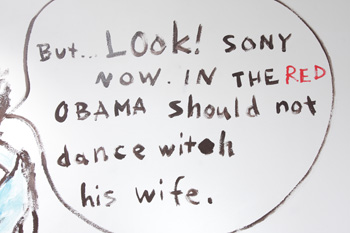 But... LOOK! SONY
NOW. IN THE RED
OBAMA should not
dance witch
his wife.